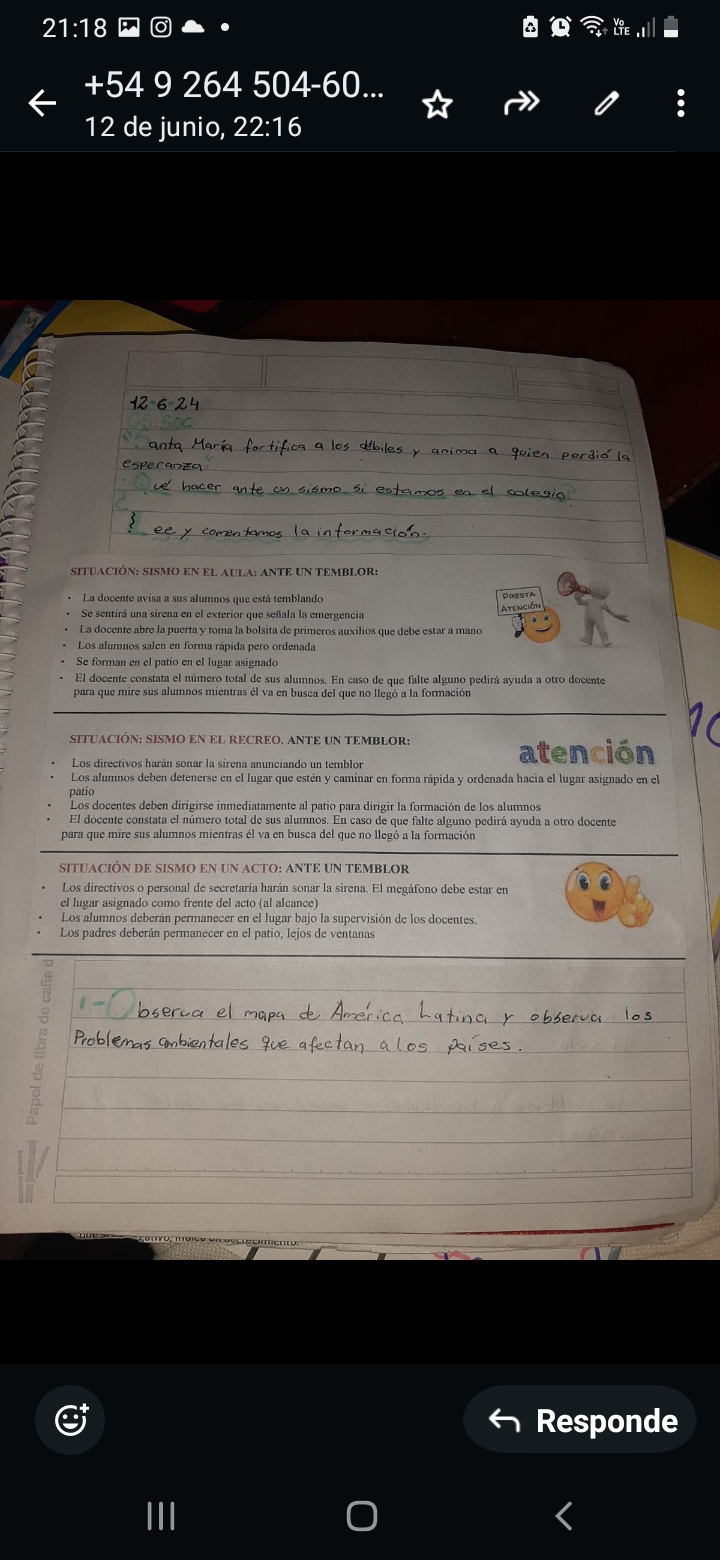 21:18
Vo
LTE
+54 9 264 504-60...
12 de junio, 22:16
12-6-24
Cs. Soc
"Santa María fortifica a los débiles y anima a quien perdió la
esperanza"
¿Qué hacer ante un sismo si estamos en el colegio?
Lee y comentamos la información.
SITUACIÓN: SISMO EN EL AULA: ANTE UN TEMBLOR:
PRESTA
ATENCIÓN
• La docente avisa a sus alumnos que está temblando
• Se sentirá una sirena en el exterior que señala la emergencia
• La docente abre la puerta y toma la bolsita de primeros auxilios que debe estar a mano
• Los alumnos salen en forma rápida pero ordenada
• Se forman en el patio en el lugar asignado
• El docente constata el número total de sus alumnos. En caso de que falte alguno pedirá ayuda a otro docente
para que mire sus alumnos mientras él va en busca del que no llegó a la formación
SITUACIÓN: SISMO EN EL RECREO. ANTE UN TEMBLOR:
atención
• Los directivos harán sonar la sirena anunciando un temblor
• Los alumnos deben detenerse en el lugar que estén y caminar en forma rápida y ordenada hacia el lugar asignado en el
patio
• Los docentes deben dirigirse inmediatamente al patio para dirigir la formación de los alumnos
• El docente constata el número total de sus alumnos. En caso de que falte alguno pedirá ayuda a otro docente
para que mire sus alumnos mientras él va en busca del que no llegó a la formación
SITUACIÓN DE SISMO EN UN ACTO: ANTE UN TEMBLOR
• Los directivos o personal de secretaría harán sonar la sirena. El megáfono debe estar en
el lugar asignado como frente del acto (al alcance)
• Los alumnos deberán permanecer en el lugar bajo la supervisión de los docentes.
• Los padres deberán permanecer en el patio, lejos de ventanas
1-Observa el mapa de América Latina y observa los
Problemas ambientales que afectan a los países.
Papel de fibra de caña d
Responde